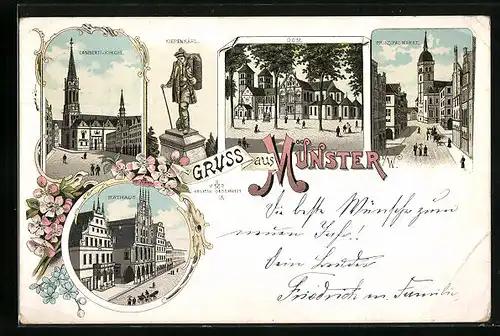 LAMBERTI-KIRCHE.
KIEPENKERL.
DOM.
PRINZIPAL MARKT.
GRUSS aus MÜNSTER i/W.
RATHAUS.
Die beste Wünsche zum
neuen Jahr!!
Dein
Friedrich u. Familie